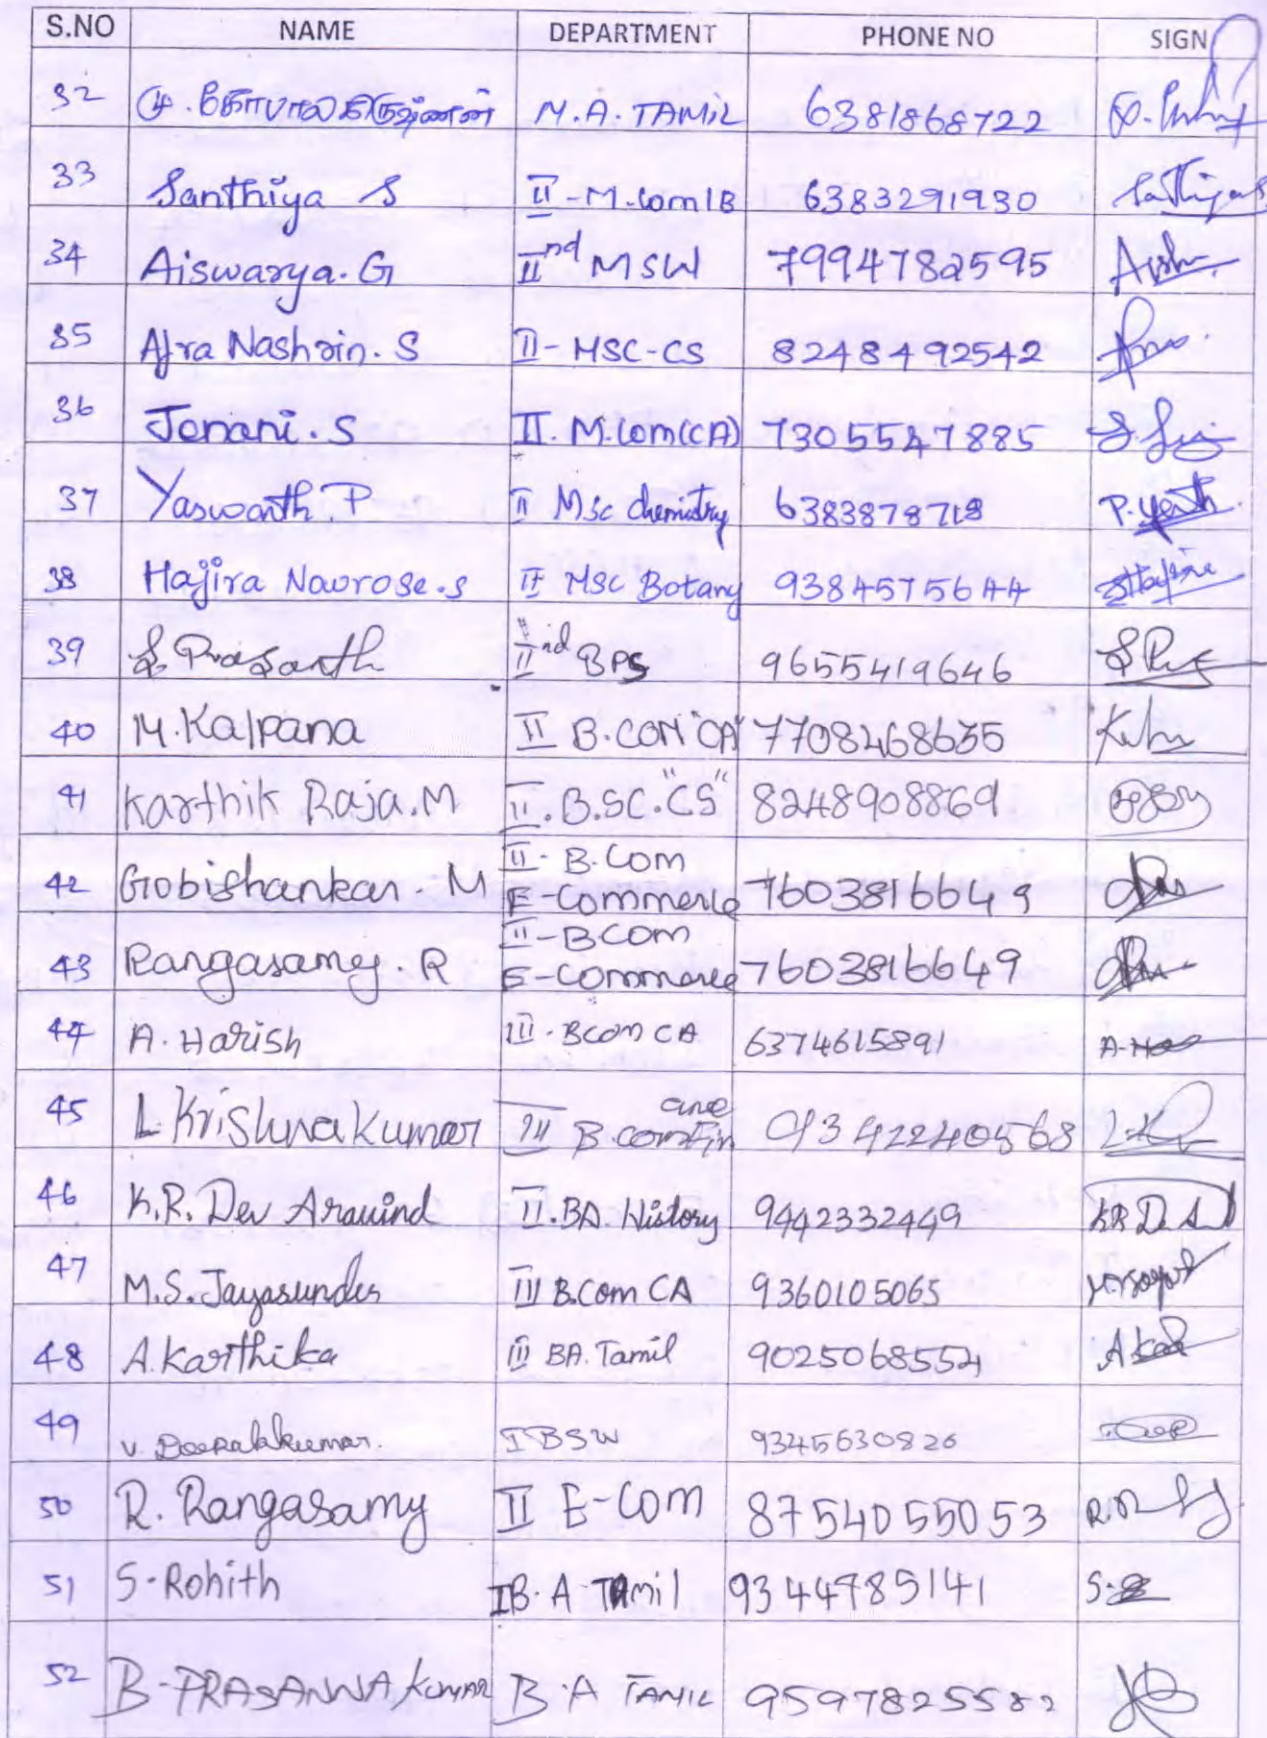 S.NO NAME DEPARTMENT PHONE NO SIGN
32 மு. கோபாலகிருஷ்ணன் M.A. TAMIL 6381868722
33 Santhiya S II-M.Com IB 6383291930
34 Aiswarya. G IInd MSW 7994782595 Aishu
35 Afra Nashrin. S II-MSC-CS 8248492542
36 Jenani. S II. M.Com(CA) 7305547885
37 Yaswanth. P II Msc chemistry 6383878718
38 Hajira Navrose.s II MSC Botany 9384575644
39 S. Prasanth IInd BPS 9655419646
40 M. Kalpana II B.COM "CA" 7708268635
41 Karthik Raja.M II. B.SC. "CS" 8248908869
42 Gobishankar. M II- B.Com E-Commerce 7603816649
43 Rangasamy. R II-BCOM E-Commerce 7603816649
44 A. Harish III-Bcom CA 6374615891
45 L. Krishna kumar III B.com Fin 9342240568
46 K.R. Dev Aravind II. BA. History 9442332449
47 M.S. Jayasunder III B.Com CA 9360105065
48 A. Karthika III BA. Tamil 9025068554
49 V. Deepakkumar. I BSW 9345630826
50 R. Rangasamy II E-Com 8754055053
51 S-Rohith I B. A Tamil 9344785141
52 B-PRASANNA KUMAR B. A TAMIL 9597825582